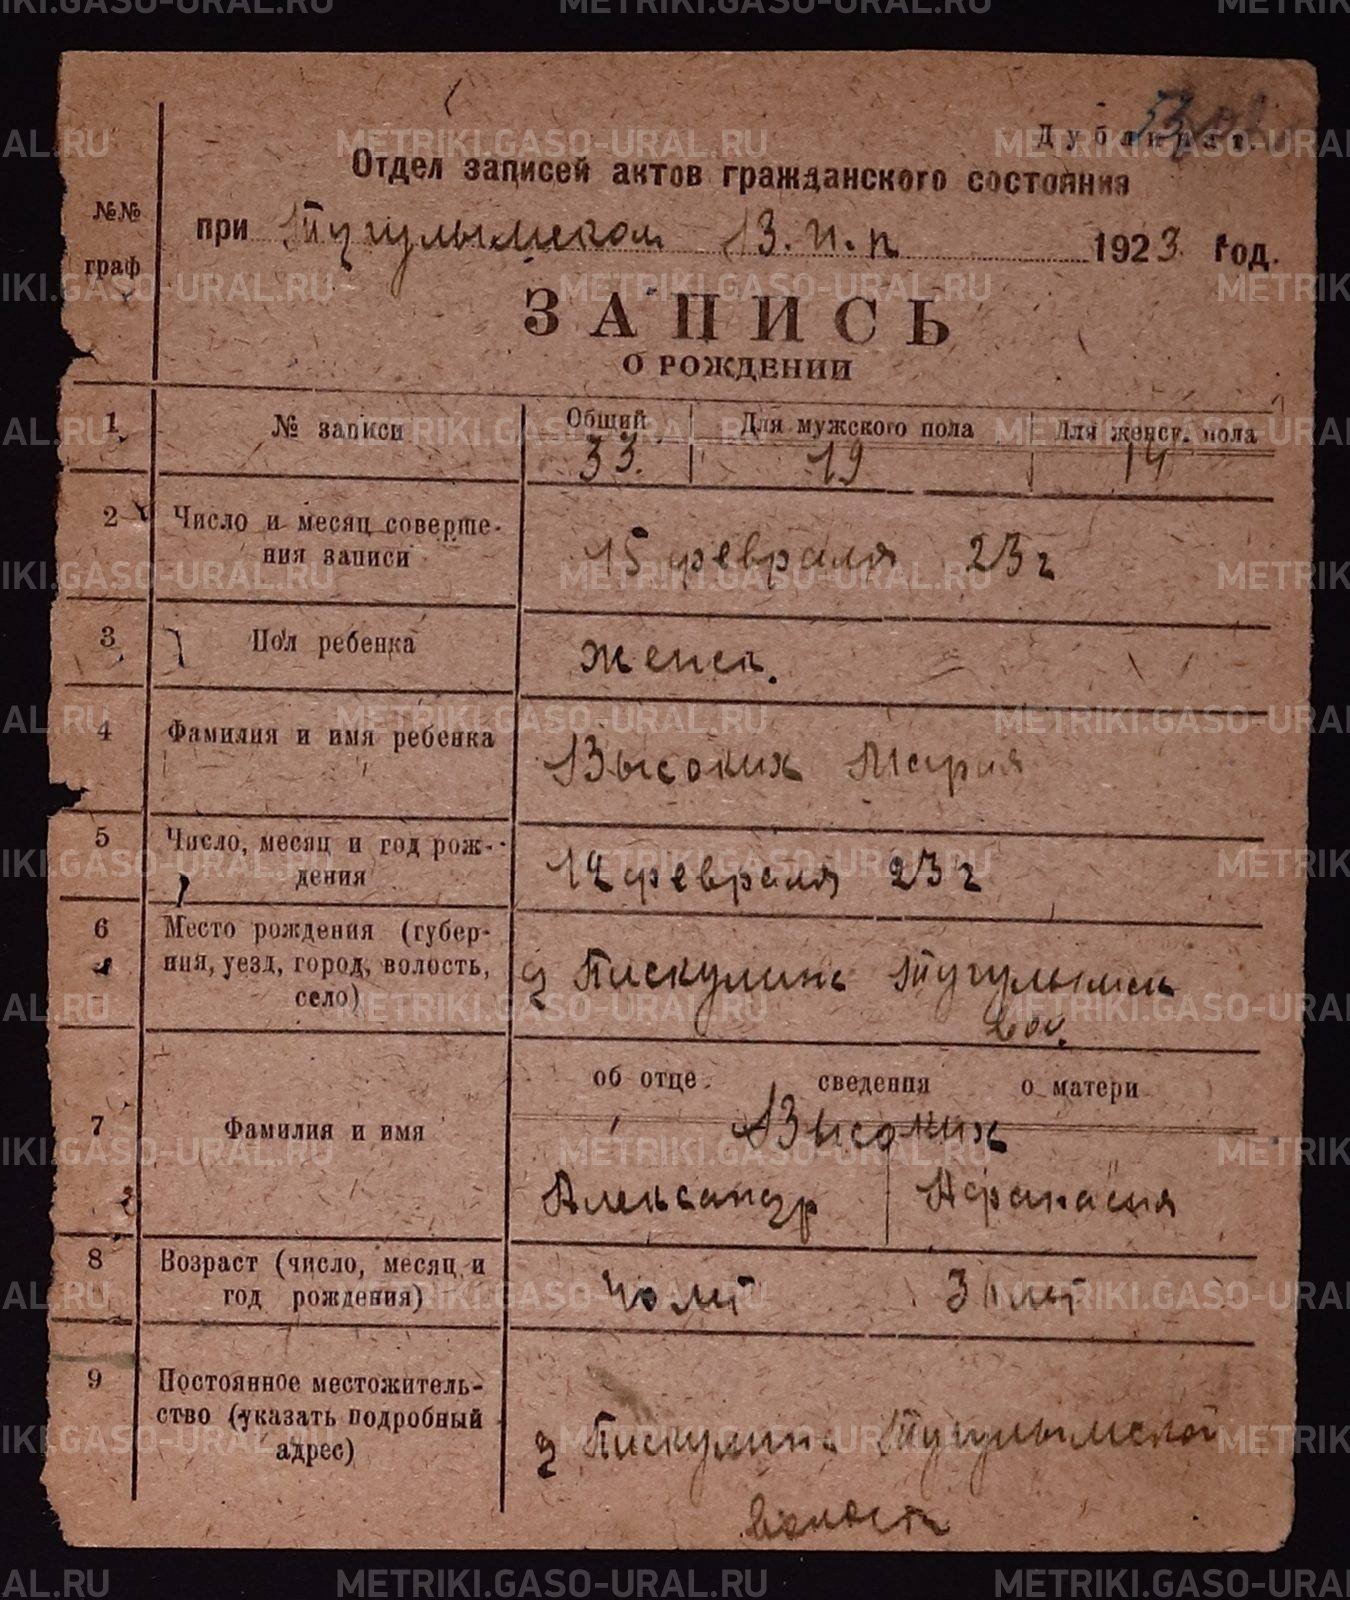 Дубликат.
Отдел записей актов гражданского состояния
№№ граф
при Тугулымском В.И.К 1923 год.
ЗАПИСЬ
О РОЖДЕНИИ
1 № записи Общий Для мужского пола Для женск. пола
33. 19 14
2 Число и месяц соверше-
ния записи
15 февраля 23 г
3 Пол ребенка Женск.
4 Фамилия и имя ребенка
Высоких Мария
5 Число, месяц и год рож-
дения
12 февраля 23 г
6 Место рождения (губер-
ния, уезд, город, волость,
село)
д Пискулина Тугулымск
вол.
об отце сведения о матери
7 Фамилия и имя
Высоких
Александр Афанасия
8 Возраст (число, месяц и
год рождения)
40 лет 31 лет
9 Постоянное местожитель-
ство (указать подробный
адрес)
д Пискулина Тугулымской
волости
METRIKI.GASO-URAL.RU